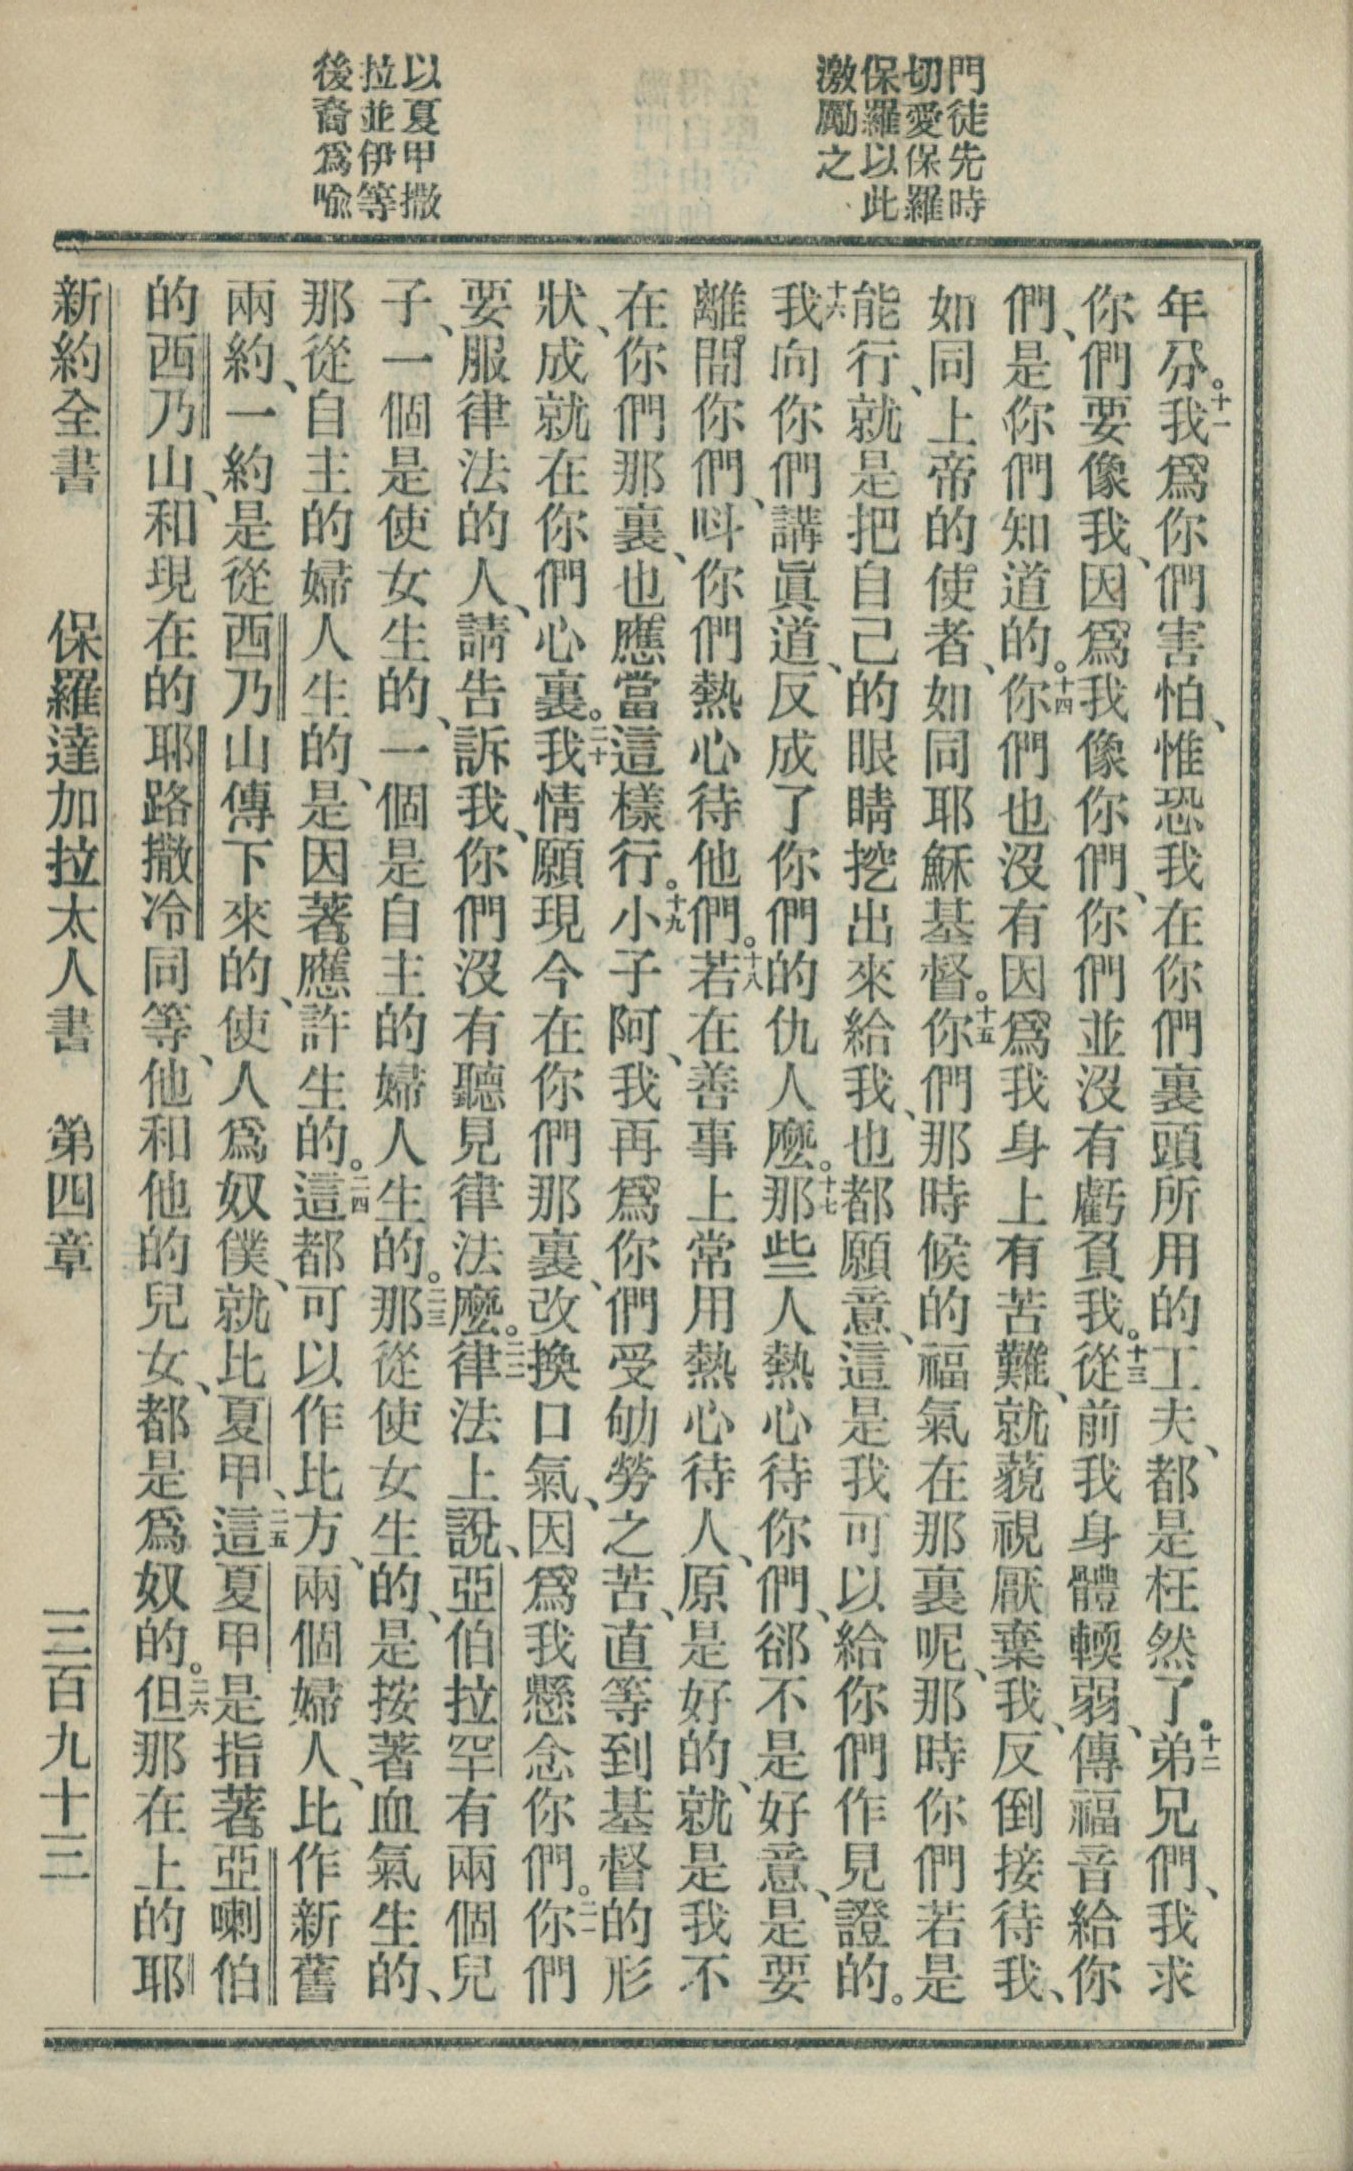 門徒先時
切愛保羅
保羅以此
激勵之
以夏甲撒
拉並伊等
後裔爲喻
年分。十一我爲你們害怕、惟恐我在你們裏頭所用的工夫、都是枉然了。十二弟兄們、我求
你們要像我、因爲我像你們、你們並沒有虧負我。十三從前我身體輭弱、傳福音給你
們、是你們知道的。十四你們也沒有因爲我身上有苦難、就藐視厭棄我、反倒接待我、
如同上帝的使者、如同耶穌基督。十五你們那時候的福氣在那裏呢、那時你們若是
能行、就是把自己的眼睛挖出來給我、也都願意、這是我可以給你們作見證的。
十六我向你們講眞道、反成了你們的仇人麼。十七那些人熱心待你們、郤不是好意、是要
離間你們、呌你們熱心待他們。十八若在善事上常用熱心待人、原是好的、就是我不
在你們那裏、也應當這樣行。十九小子阿、我再爲你們受劬勞之苦、直等到基督的形
狀、成就在你們心裏。二十我情願現今在你們那裏、改換口氣、因爲我懸念你們。二一你們
要服律法的人、請告訴我、你們沒有聽見律法麼。二二律法上說、亞伯拉罕有兩個兒
子、一個是使女生的、一個是自主的婦人生的。二三那從使女生的、是按著血氣生的、
那從自主的婦人生的、是因著應許生的。二四這都可以作比方、兩個婦人、比作新舊
兩約、一約是從西乃山傳下來的、使人爲奴僕、就比夏甲、二五這夏甲是指著亞喇伯
的西乃山、和現在的耶路撒冷同等、他和他的兒女、都是爲奴的。二六但那在上的耶
新約全書　保羅達加拉太人書　第四章　三百九十三